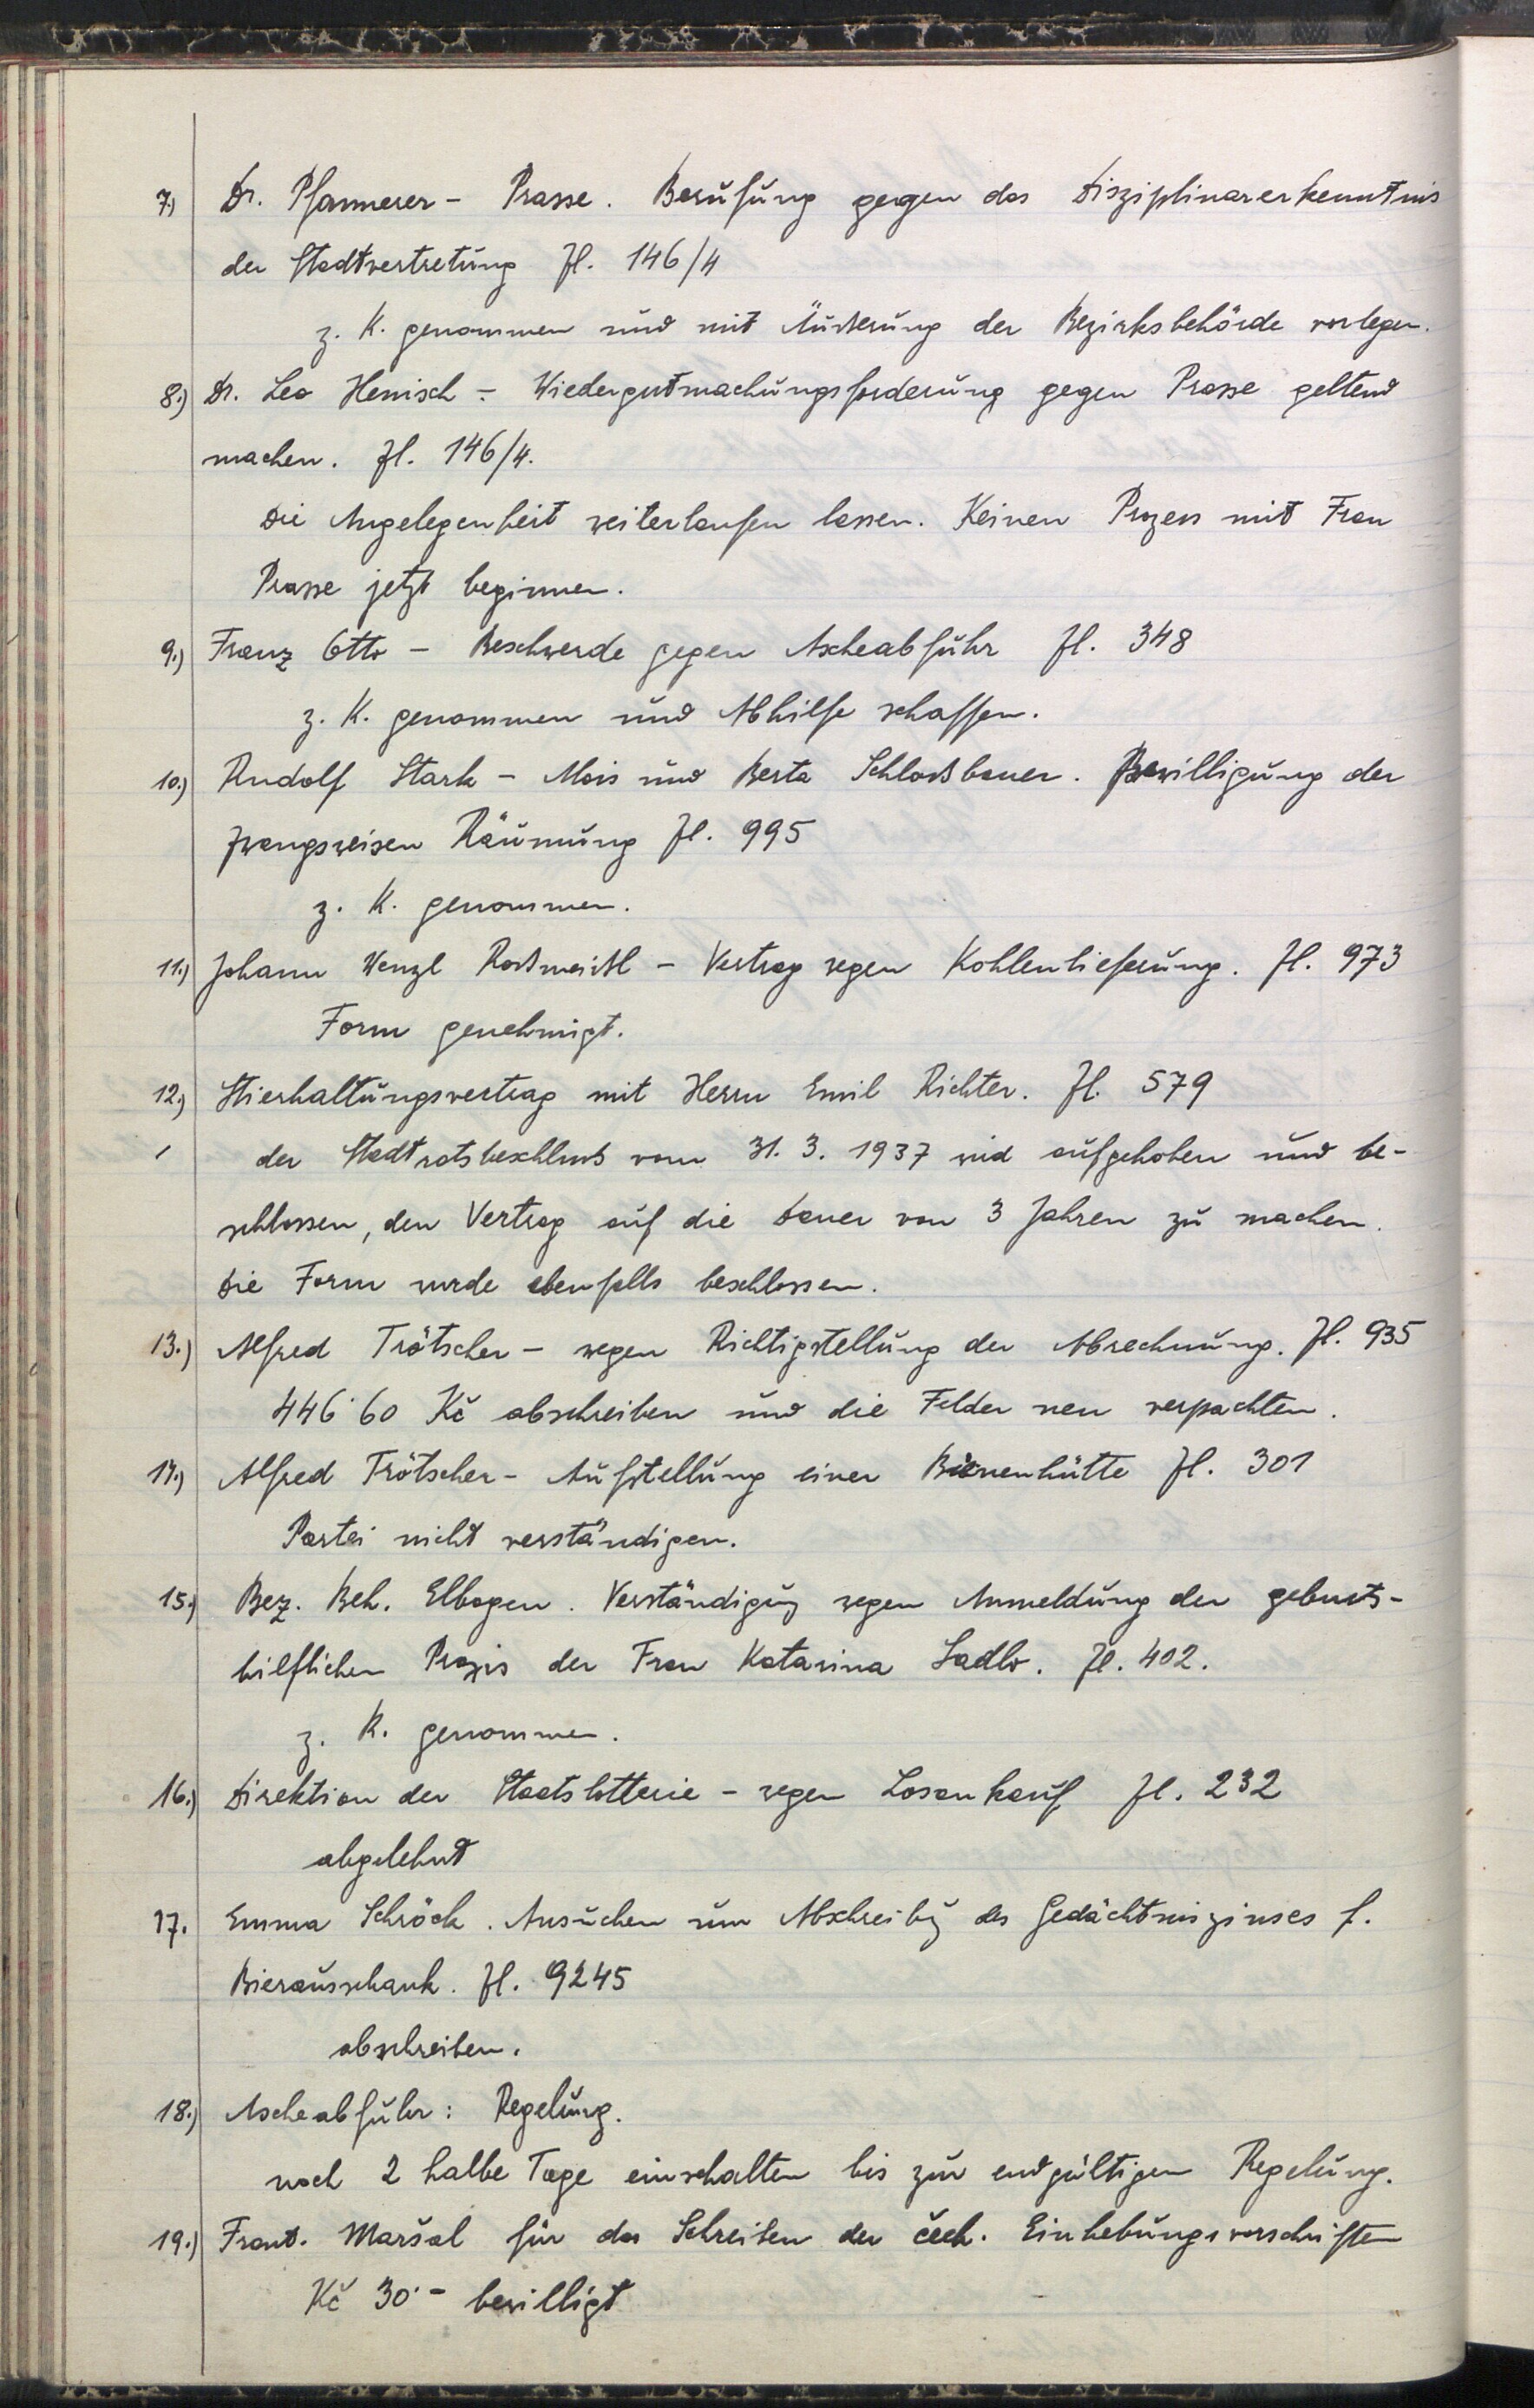 7.) Dr. Pfannerer - Prasse. Berufung gegen das Disziplinarerkenntnis
der Stadtvertretung Zl. 146/4
z. K. genommen und mit Äusserung der Bezirksbehörde vorlegen.
8.) Dr. Leo Henisch - Wiedergutmachungsforderung gegen Prasse geltend
machen. Zl. 146/4.
Die Angelegenheit weiterlaufen lassen. Keinen Prozess mit Frau
Prasse jetzt beginnen.
9.) Franz Otto - Beschwerde gegen Ascheabfuhr Zl. 348
z. K. genommen und Abhilfe schaffen.
10.) Rudolf Stark - Alois und Berta Schlossbauer. Bewilligung der
zwangsweisen Räumung Zl. 995
z. K. genommen.
11.) Johann Wenzl Rossmeisl - Vertrag wegen Kohlenlieferung. Zl. 973
Form genehmigt.
12.) Stierhaltungsvertrag mit Herrn Emil Richter. Zl. 579
der Stadtratsbeschluss vom 31. 3. 1937 wird aufgehoben und be-
schlossen, den Vertrag auf die Dauer von 3 Jahren zu machen.
Die Form wurde ebenfalls beschlossen.
13.) Alfred Trötscher - wegen Richtigstellung der Abrechnung. Zl. 935
446˙60 Kč abschreiben und die Felder neu verpachten.
14.) Alfred Trötscher - Aufstellung einer Bienenhütte Zl. 301
Partei nicht verständigen.
15.) Bez. Beh. Elbogen. Verständigung wegen Anmeldung der geburts-
hilflichen Praxis der Frau Katarina Sadlo. Zl. 402.
z. K. genommen.
16.) Direktion der Staatslotterie - wegen Losankauf Zl. 232
abgelehnt
17. Emma Schröck. Ansuchen um Abschreibg des Gedächtniszinses f.
Bierausschank. Zl. 9245
abschreiben.
18.) Ascheabfuhr: Regelung.
noch 2 halbe Tage einschalten bis zur endgültigen Regelung.
19.) Frant. Maršal für das Schreiben der čech. Einhebungsvorschriften
Kč 30˙- bewilligt